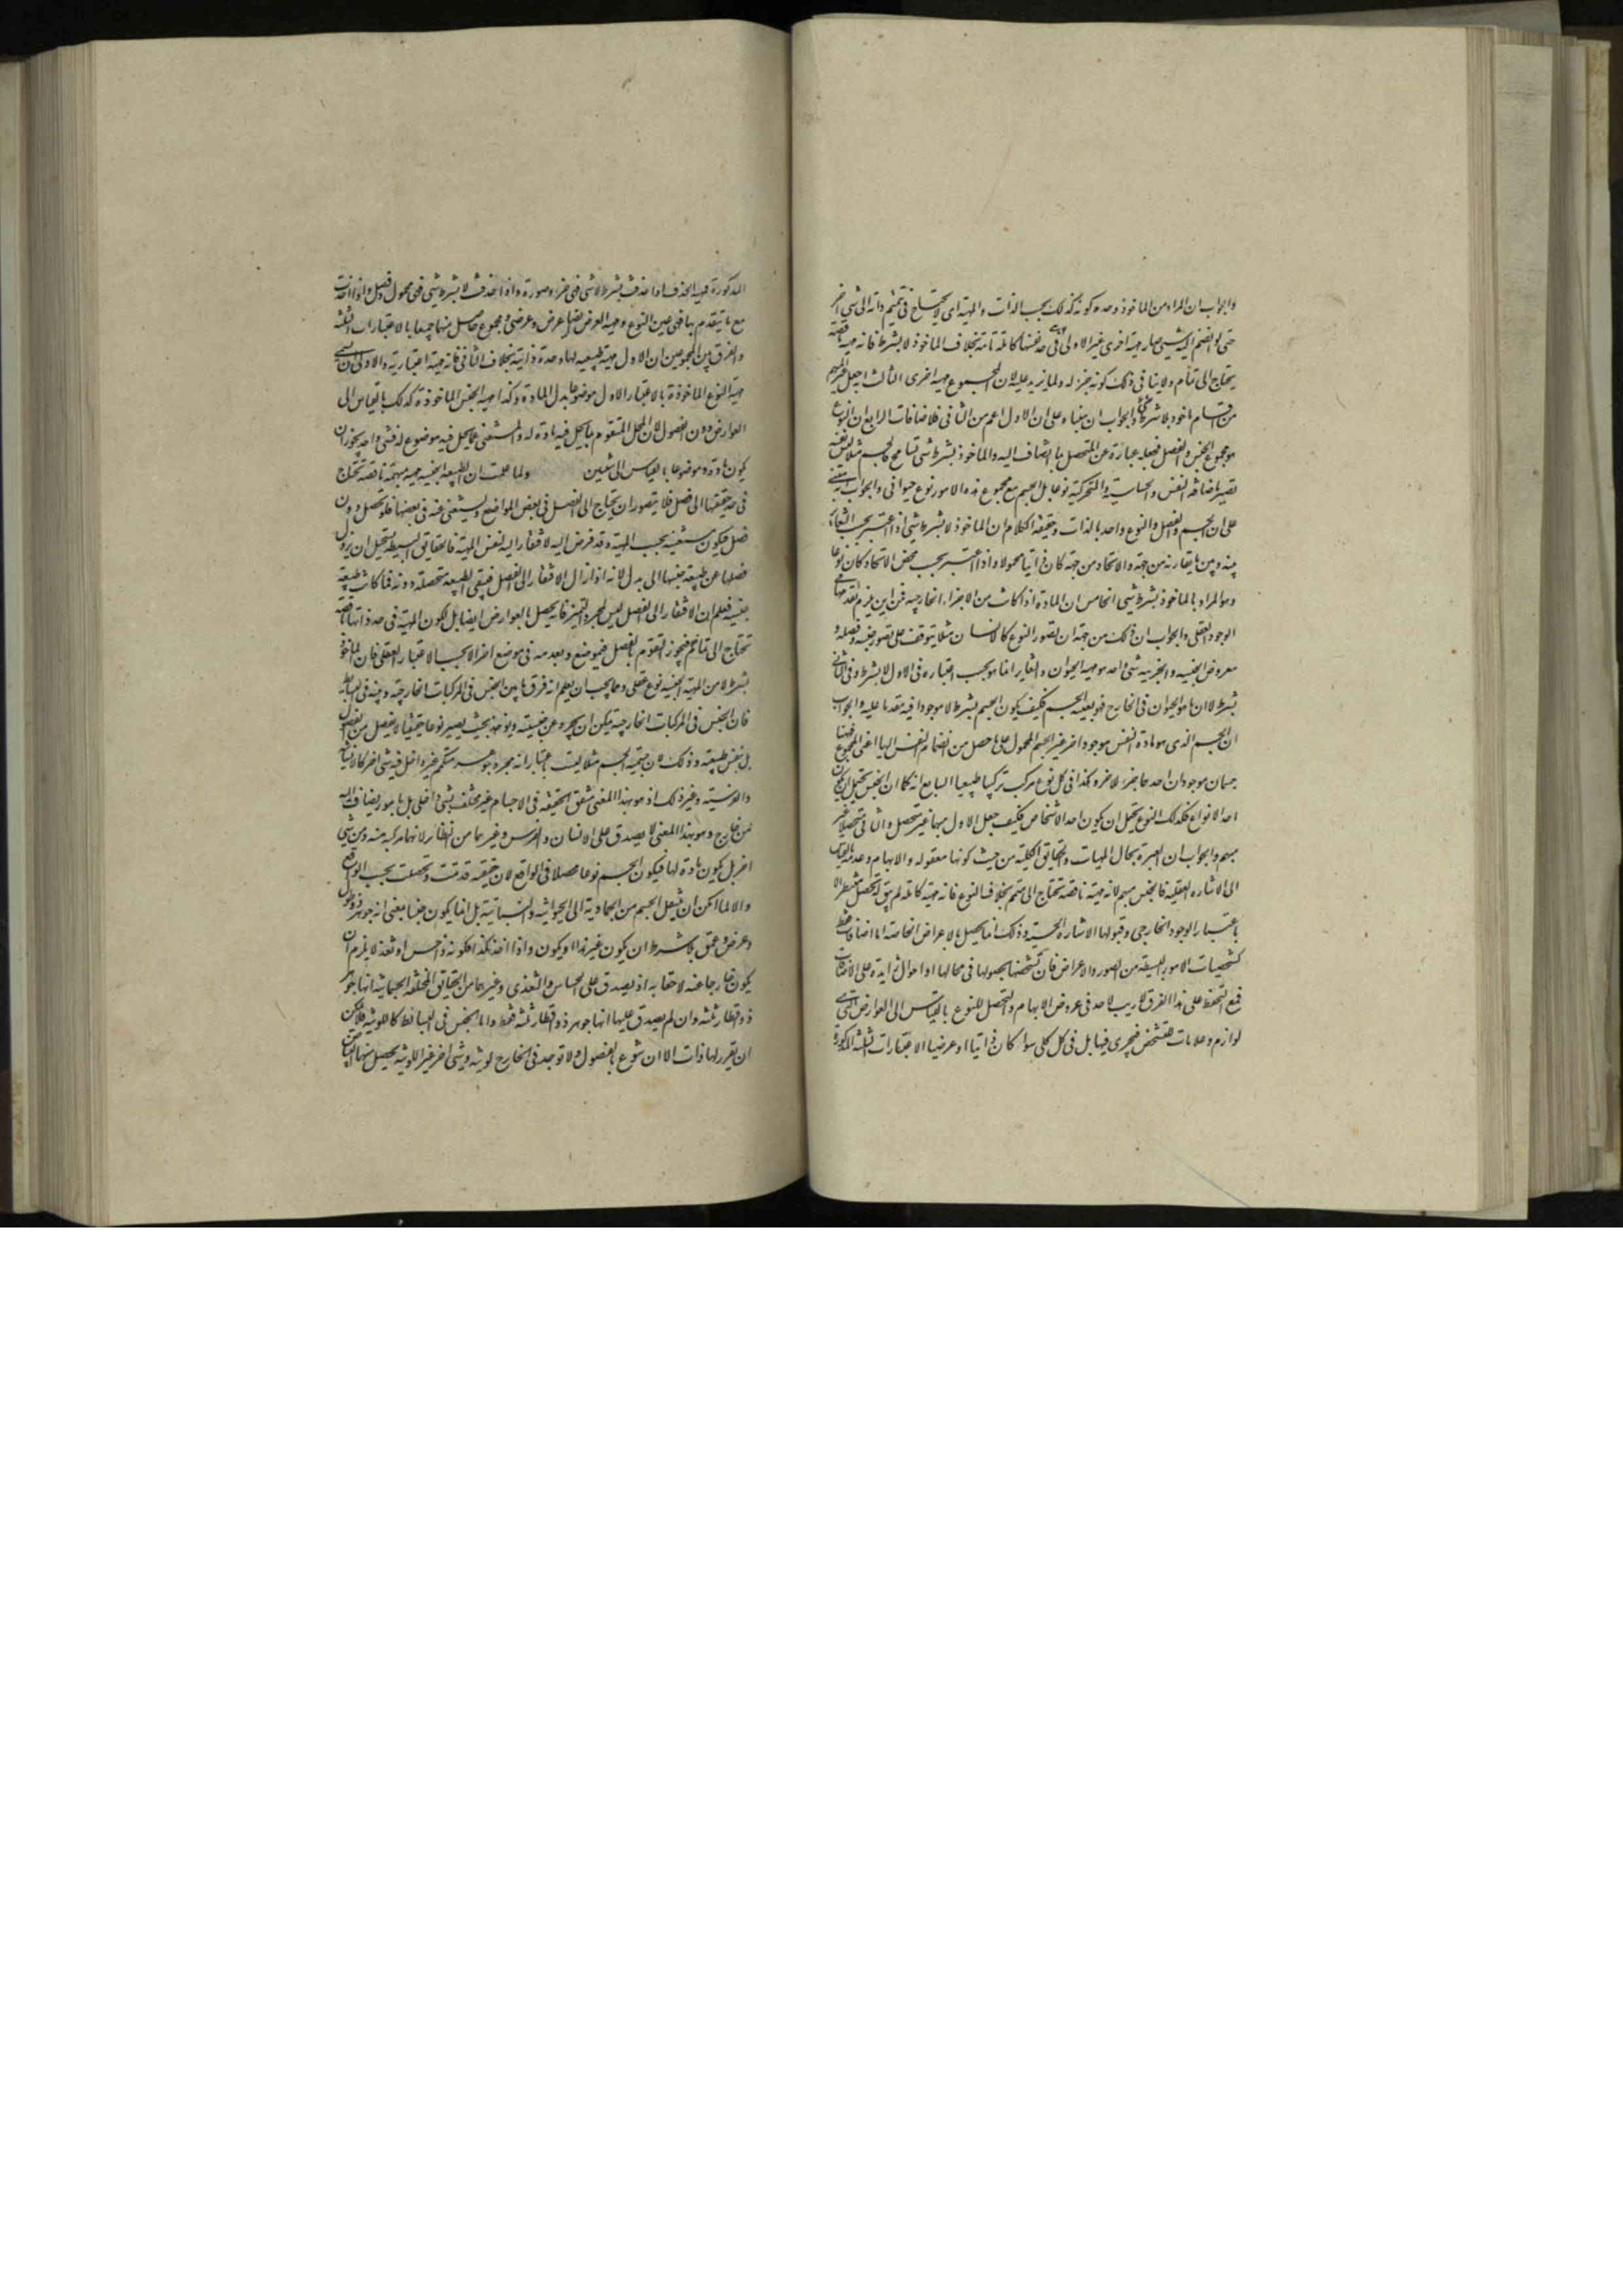 والجواب ان المراد من الماخوذ وحده كونه كذلك بحسب الذات والمهية اى لا يحتاج فى تتميم ذاته الى شى اخر
حتى لو انضم اليه شيى صار مهية اخرى غير الاولى فهى فى حد نفسها كاملة تامة بخلاف الماخوذ لا بشرط فانه مهية ناقصة
يحتاج الى متمم ولا ينافى ذلك كونه جزء له ولما يزيد عليه لان المجموع مهية اخرى الثالث اجعل غير المبهم
من اقسام الماخوذ لا بشرط شى والجواب ان مبناه على ان الاول اعم من الثانى فلا ضافات الرابع ان النوع
هو مجموع الجنس والفصل فجعله عبارة عن المتحصل بما انضاف اليه والماخوذ بشرط شى تسامح كالجسم مثلا ليس
تصير باضافة النفس والحساسية والمتحركية نوعا بل الجسم مع مجموع هذه الامور نوع حيوانى والجواب انه مبنى
على ان الجسم والفصل والنوع واحد بالذات وحقيقة الكلام ان الماخوذ لا بشرط شى اذا اعتبر بحسب التغاير
بينه وبين ما يقارنه من جهة والاتحاد من جهة كان ذاتيا محمولا واذا اعتبر بحسب محض الاتحاد كان نوعا
وهو المراد بالماخوذ بشرط شيى الخامس ان المادة اذا كانت من الاجزاء الخارجية فمن اين يلزم تقدمها فى
الوجود العقلى والجواب ان ذلك من جهة ان تصور النوع كالانسان مثلا يتوقف على تصور جنسه وفصله و
معروض الجنسية والجزئية شى واحد هو مهية الحيوان والتغاير انما هو بحسب اعتباره فى الاول لا بشرط وفى الثانى
بشرط لا ان ما هو الحيوان فى الخارج فهو بعينه الجسم فكيف يكون الجسم بشرط لا موجودا فيه متقدما عليه والجواب
ان الجسم الذى هو مادة النفس موجود اخر غير الجسم المحمول على ما حصل من انضمام النفس اليها اعنى المجموع فهنا
جسمان موجودان احدهما جزء للاخر وهكذا فى كل نوع مركب تركيبا طبيعيا السابع انه كما ان الجنس يحتمل ان يكون
احد الانواع فكذلك النوع يحتمل ان يكون احد الاشخاص فكيف جعل الاول مبهما غير متحصل والثانى متحصلا غير
مبهم والجواب ان العبرة بحال المهيات والحقايق الكلية من حيث كونها معقولة والابهام وعدمه بالقياس
الى الاشارة العقلية فالجنس مبهم لانه مهية ناقصة تحتاج الى متمم بخلاف النوع فانه مهية كاملة لم يبق له تحصل منتظر الا
باعتبار الوجود الخارجى وقبولها الاشارة الحسية وذلك انما يحصل بالاعراض الخاصة اما اضافات فقط
كتشخصات الامور البسيطة من الصور والاعراض فان تشخصها بحصولها فى محالها او احوال زايدة على الاضافات
فمع التحفظ على هذا الفرق لا ريب لاحد فى عروض الابهام والتحصل للنوع بالقياس الى العوارض التى هى
لوازم وعلامات للتشخص فيجرى فيها بل فى كل كلى سواء كان ذاتيا او عرضيا الاعتبارات الثلثة المذكورة
المذكورة فمهية الجنس اذا اخذت بشرط لا شى فهى جزء وصورة واذا اخذت لا بشرط شى فهى محمول وفصل واذا اخذت
مع ما يتقوم بها فهى عين النوع ومهية العرض ايضا عرض وعرضى ومجموع حاصل منهما جميعا بالاعتبارات الثلثة
والفرق بين المجموعين ان الاول مهية طبيعية لها وحدة ذاتية بخلاف الثانى فانه مهية اعتبارية والاولى ان يسمى
مهية النوع الماخوذة بالاعتبار الاول موضوعا بدل المادة وكذا مهية الجنس الماخوذة كذلك بالقياس الى
العوارض دون الفصول لان المحل المتقوم بما يحل فيه مادة له والمستغنى عما يحل فيه موضوع له فشى واحد يجوز ان
يكون مادة وموضوعا بالقياس الى شيئين ولما علمت ان الطبيعة الجنسية مهية مبهمة ناقصة تحتاج
فى حد حقيقتها الى فصل فلا يتصور ان يحتاج الى الفصل فى بعض المواضع ويستغنى عنه فى بعضها فلو تحصل دون
فصل فيكون مستغنية بحسب المهية وقد فرض اليه لافتقار اليه لنفس المهية فالحقايق البسيطة يستحيل ان يزول
فصلها عن طبيعة جنسها الى بدل لانه اذا زال الافتقار الى الفصل فيبقى الطبيعة متحصلة دونه فما كانت طبيعة
جنسية فعلم ان الافتقار الى الفصل ليس لمجرد التميز فانه يحصل بالعوارض ايضا بل لكون المهية فى حد ذاتها ناقصة
تحتاج الى متمم فيجوز التقوم بالفصل فى موضع وبعدمه فى موضع اخر لا بحسب الاعتبار العقلى فان الماخوذ
بشرط لا من المهية الجنسية نوع عقلى ومما يجب ان يعلم انه فرق ما بين الجنس فى المركبات الخارجية وبينه فى البسايط
فان الجنس فى المركبات الخارجية يمكن ان يجرد عن جنسيته ويؤخذ بحيث يصير نوعا حقيقيا لا بفصل من الفصول
بل بنفس طبيعته وذلك لان جسمية الجسم مثلا ليست باعتبار انه مجرد جوهر متكمم غير داخل فيه شى اخر كالانسانية
والفرسية وغير ذلك اذ هو بهذا المعنى متفق الحقيقة فى الاجسام غير مختلف بشى داخلى بل بامور يضاف اليه
من خارج وهو بهذا المعنى لا يصدق على الانسان والفرس وغيرهما من النظائر لانها مركبة منه ومن شى
اخر بل يكون مادة لها فيكون الجسم نوعا محصلا فى الواقع لان حقيقته قد تمت وتحصلت بحسب الواقع
والا لما امكن ان ينتقل الجسم من الجمادية الى الحيوانية والنباتية بل انما يكون جنسا بمعنى انه جوهر ذو طول
وعرض وعمق بلا شرط ان يكون غير هذا او يكون واذا اخذ هكذا فكونه ذا حس او تغذ لا يلزم ان
يكون خارجا عنه لاحقا به اذ يصدق على الحساس والمتغذى وغيرهما من الحقايق المختلفة الجسمانية انها جوهر
ذو اقطار ثلثة وان لم يصدق عليها انها جوهر ذو اقطار ثلثة فقط واما الجنس فى البسائط كاللونية فلا يمكن
ان يتقرر لها ذات الا ان تنوع بالفصول ولا توجد فى الخارج لونية وشى اخر غير اللونية يحصل منهما البياض